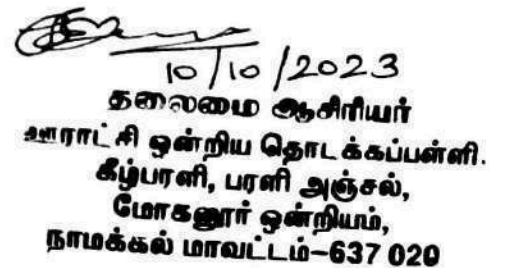 10/10/2023
தலைமை ஆசிரியர்
ஊராட்சி ஒன்றிய தொடக்கப்பள்ளி.
கீழ்பரளி, பரளி அஞ்சல்,
மோகனூர் ஒன்றியம்,
நாமக்கல் மாவட்டம்-637 020